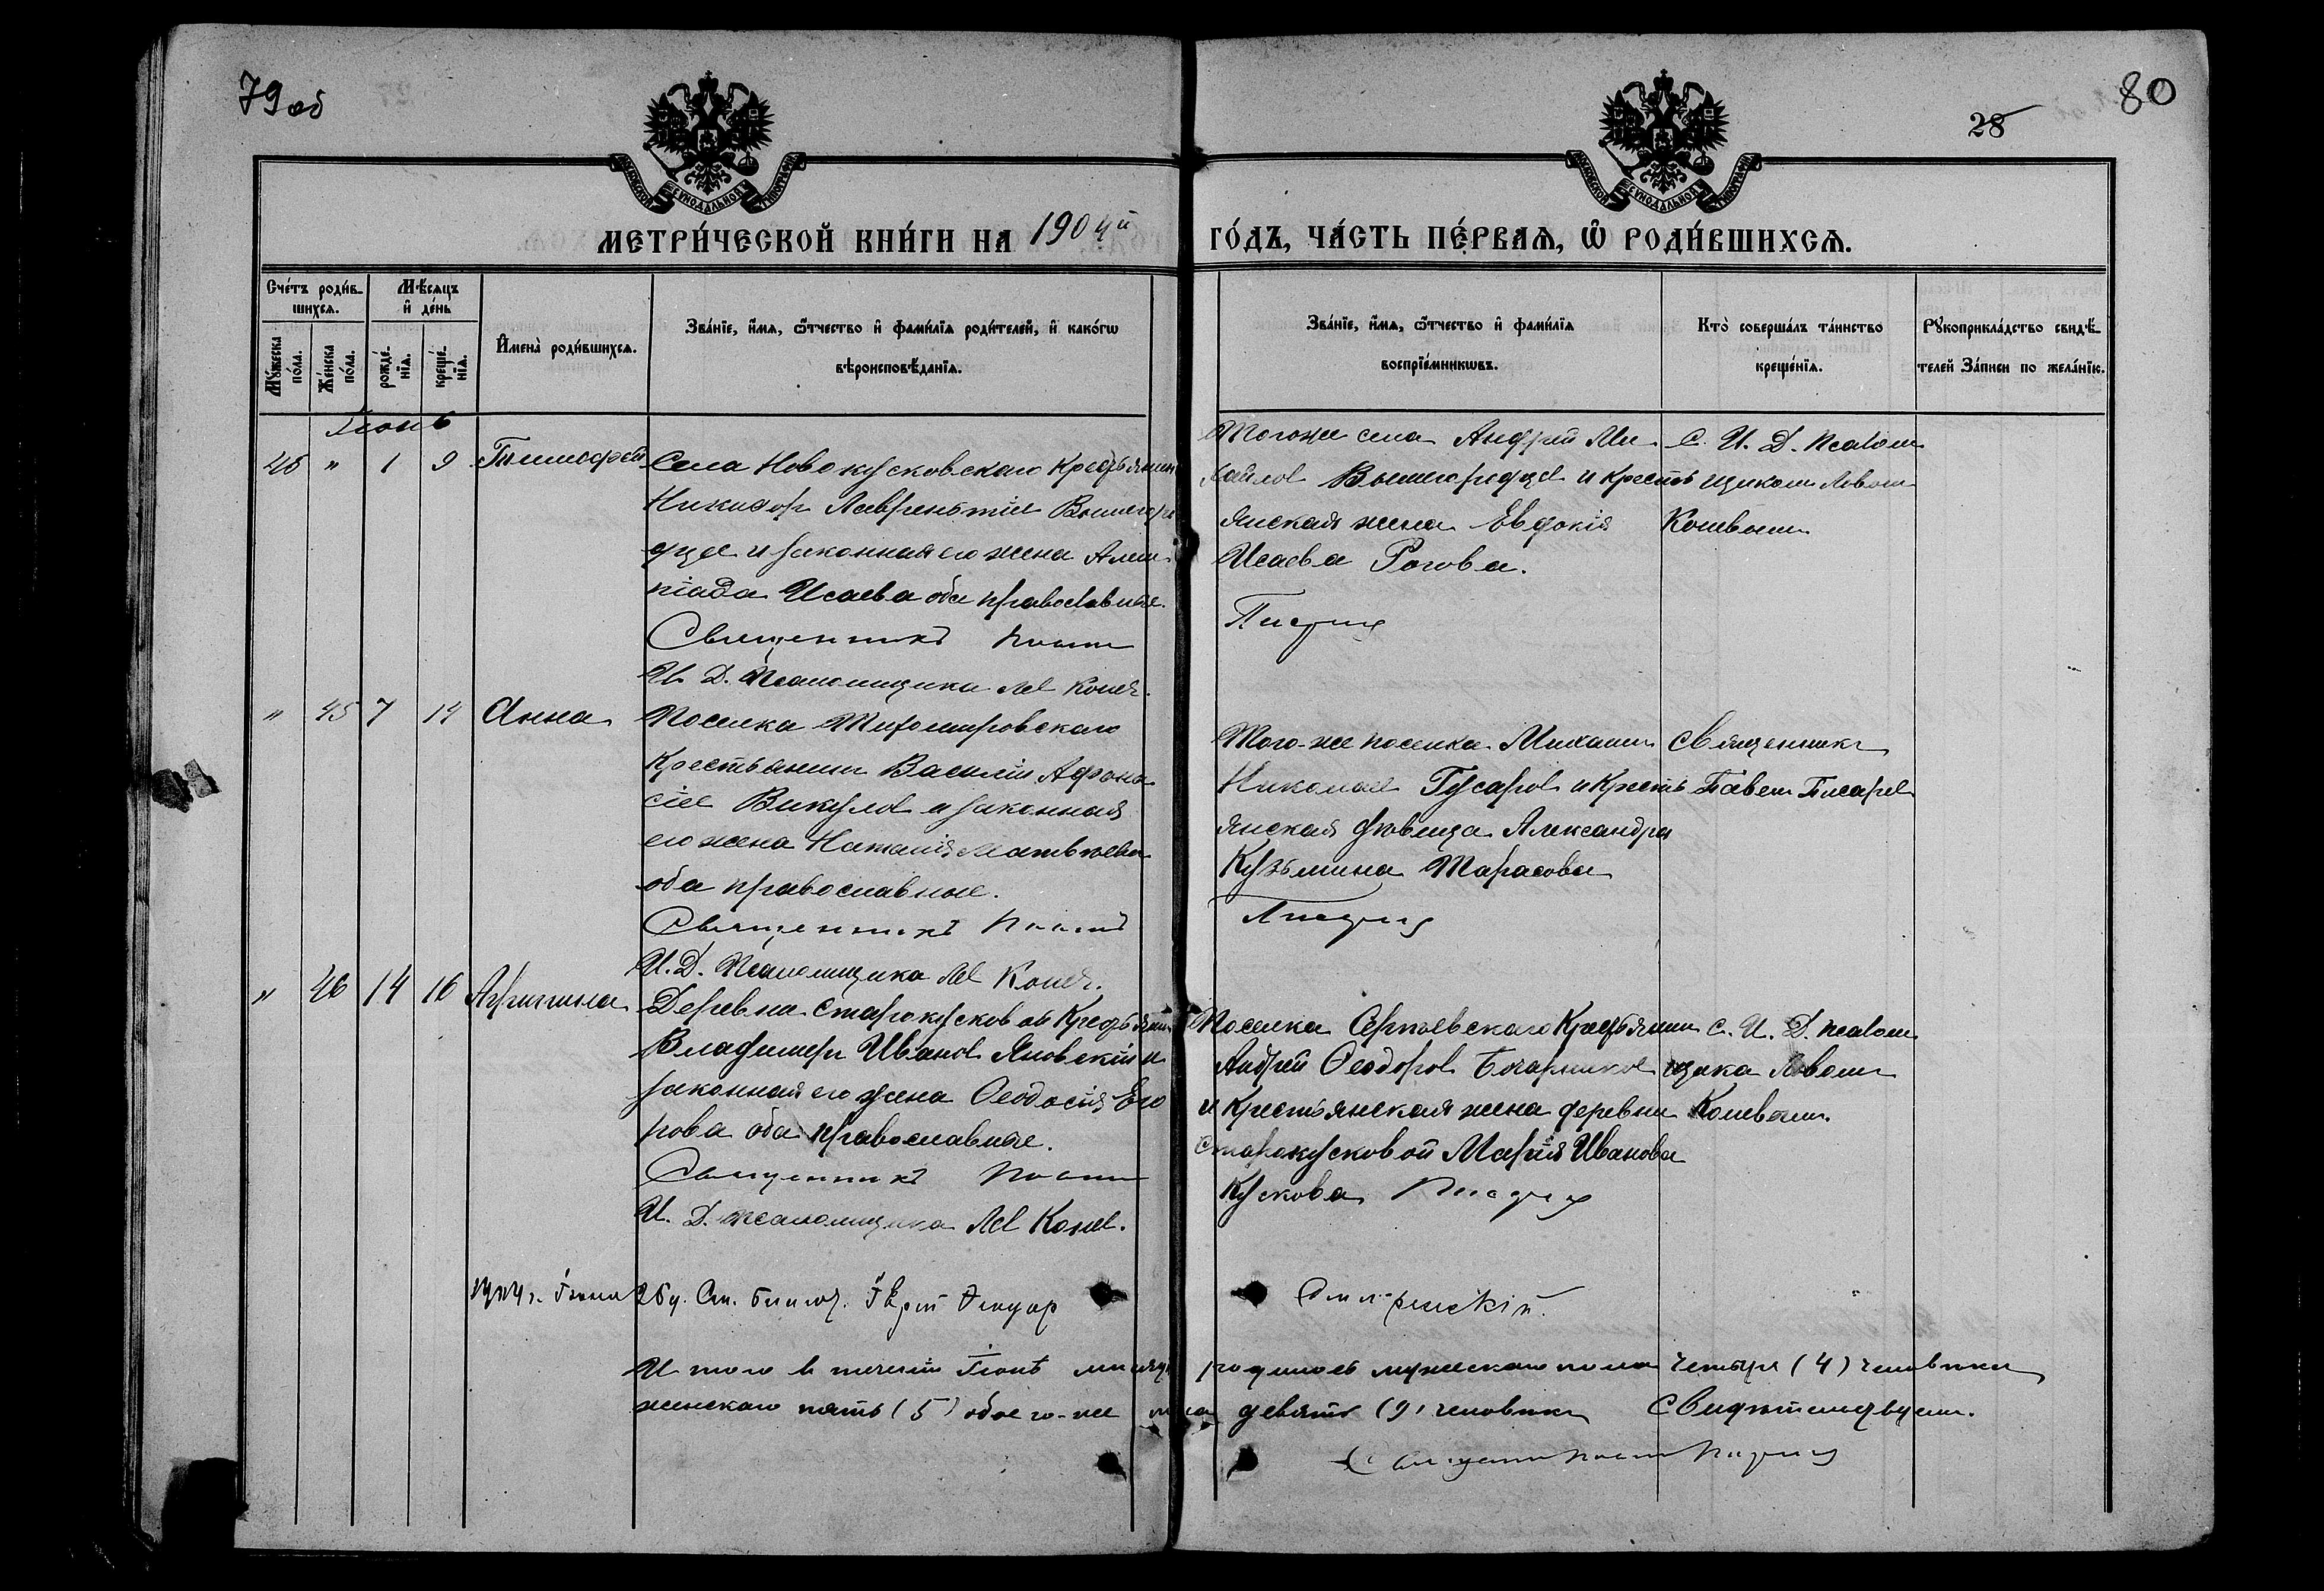 79 об
80
28
МОСКОВСКОЙ СѴНОДАЛЬНОЙ ТИПОГРАФІИ
МОСКОВСКОЙ СѴНОДАЛЬНОЙ ТИПОГРАФІИ
МЕТРИ́ЧЕСКОЙ КНИ́ГИ НА 1904й ГО́ДЪ, ЧА́СТЬ ПЕ́РВАѦ, Ѡ҆ РОДИ́ВШИХСѦ.
Сче́тъ роди́в-
шихсѧ.
Мꙋ́жеска по́ла.
Же́нска по́ла.
Мѣ́сѧцъ
и҆ де́нь
рожде́-
нїѧ.
креще́-
нїѧ.
И҆мена̀ роди́вшихсѧ.
Зва́нїе, и҆́мѧ, ѻ҆́тчество и҆ фами́лїѧ роди́телей, и҆ како́гѡ
вѣроисповѣ́данїѧ.
Зва́нїе, и҆́мѧ, ѻ҆́тчество и҆ фами́лїѧ
воспрїе́мникѡвъ.
Кто̀ соверша́лъ та́инство
креще́нїѧ.
Рꙋкоприкла́дство свидѣ́-
телей За́писи по жела́нїю.
Іюнь
46 " 1 9 Тимофей
Села Новокусковскаго Крестьянин
Никифор Лаврентіев Вышегоро
дцев и законная его жена Алим
піада Исаева оба православные.
Священникъ Павел
И. Д. Псаломщика Лев Конев.
Тогоже села Андрей Ми
хайлов Вышегородцев и кресть
янская жена Евдокія
Исаева Рогова.
Писарев
С. И. Д. Псалом
щиком Львом
Коневым
" 45 7 14 Анна
Поселка Тихомировскаго
Крестьянин Василій Афана
сіев Викулов и законная
его жена Наталія Матвѣева
оба православные.
Священникъ Павел
И. Д. Псаломщика Лев Конев.
Того-же поселка Михаил
Николаев Гусаров и кресть
янская дѣвица Александра
Кузьмина Тарасова
Писарев
Священник
Павел Писарев
" 46 14 16 Агрипина
Деревни Старокусковой Крестьянин
Владимир Иванов Яновскій и
законная его жена Ѳеодосія Его
рова оба православные.
Священникъ Павел
И. Д. псаломщика Лев Конев.
Поселка Сергѣевскаго Крестьянин
Андрей Ѳеодоров Бочарников
и Крестьянская жена деревни
Старокусковой Марія Иванова
Кускова Писарев
С. И. Д. Псалом
щика Львом
Коневым.
1904 г. Іюня 26 д. См. Благоч. Іерей
И того в теченіи Іюнѣ мѣсяца родилось мужескаго пола четыре (4) человѣка
женскаго пять (5) обоего-же пола девять (9) человѣк Свидѣтельствуем.
Священник Павел Писарев